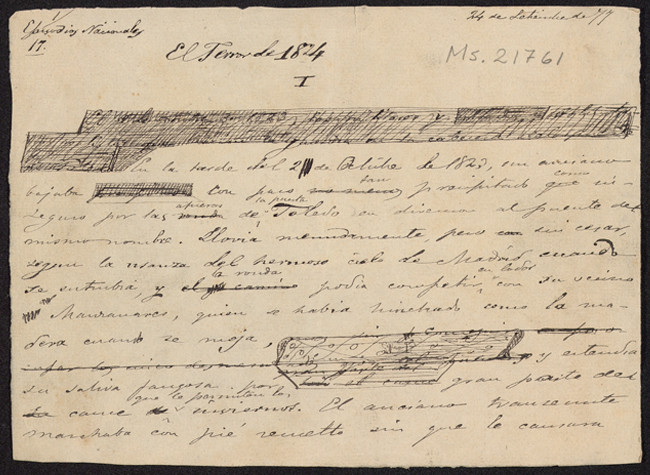 Episodios Nacionales
17.
24 de Setiembre de 77
El Terror de 1824
Ms. 21761
I
En la tarde del 2 de Octubre de 1823, un anciano
bajaba con paso tan precipitado como in-
seguro por las afueras de la puerta de Toledo en direccion al puente del
mismo nombre. Llovia menudamente, pero sin cesar,
segun la usanza del hermoso cielo de Madrid cuando
se enturbia, y la ronda podia competir en lodos con su vecino
Manzanares, quien se habia hinchado como la ma-
dera cuando se moja, y estendia
su saliva fangosa por gran parte del
cauce que le permiten los inviernos. El anciano transeunte
marchaba con pié resuelto sin que le causara